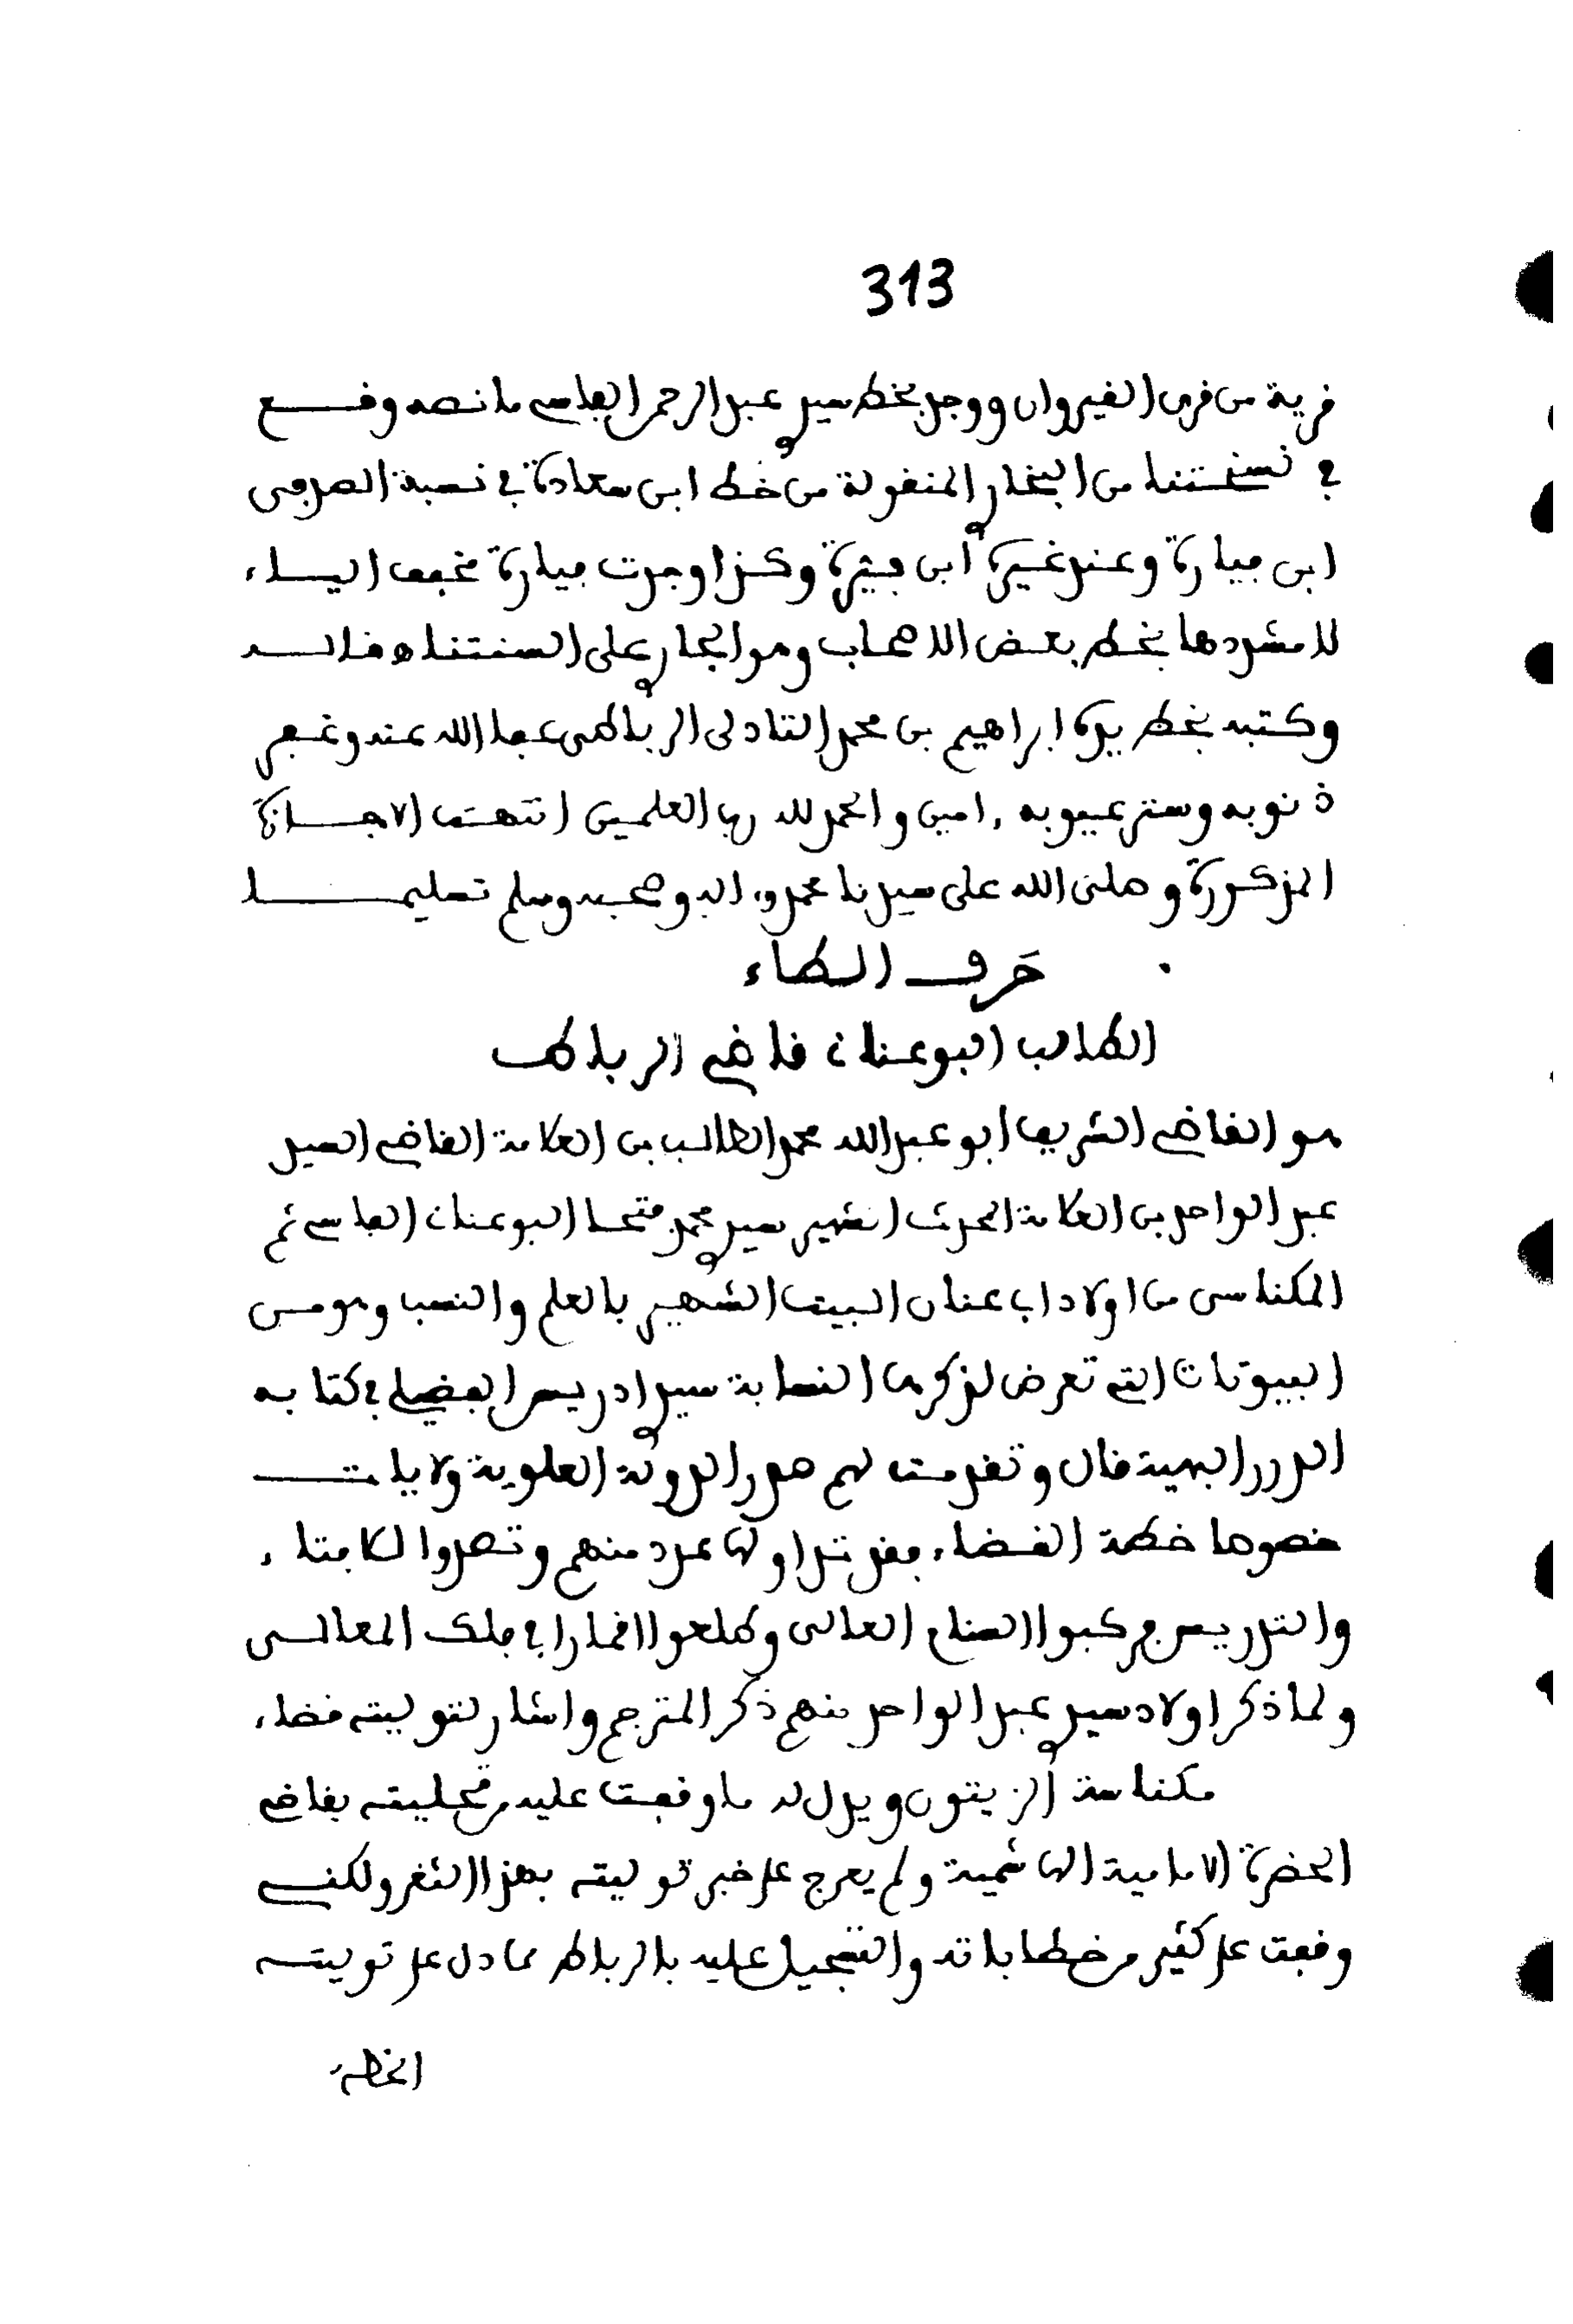 313
قرية من قرى القيروان ووجد بخط سيدي عبد الرحمن الفاسي ما نصه وقع
في نسختنا من البخاري المنقولة من خط ابن سعادة في نسبة الصرفي
ابن فيارة وعند غيره ابن فيرة وكذا وجدت فيارة مخفف الياء
لا مشددها بخط بعض الاصحاب وهو الجاري على السنتنا اه قاله
وكتبه بخط يده ابراهيم بن محمد التادلي الرباطي عفا الله عنه وغفر
ذنوبه وستر عيوبه ءامين والحمد لله رب العلمين انتهت الاجازة
المذكورة وصلى الله على سيدنا محمد وءاله وصحبه وسلم تسليما
حرف الطاء
الطالب البوعناني قاضي الرباط
هو القاضي الشريف ابو عبد الله محمد الطالب بن العلامة القاضي السيد
عبد الواحد بن العلامة المحدث الشهير سيدي محمد فتحا البوعناني الفاسي ثم
المكناسي من اولاد ابي عنان البيت الشهير بالعلم والنسب وهو من
البيوتات التي تعرض لذكرها النسابة سيدي ادريس الفضيلي في كتابه
الدرر البهية قال وتقدمت لهم صدر الدولة العلوية ولايات
خصوصا خطة القضاء فقد تداولها عدد منهم وتصدوا للافتاء
والتدريس فركبوا السنام العالي وطلعوا اقمارا في فلك المعالي
ولما ذكر اولاد سيدي عبد الواحد منهم ذكر المترجم واشار لتوليته قضاء
مكناسة الزيتون ويدل له ما وقفت عليه من تحليته بقاضي
الحضرة الامامية الهاشمية ولم يعرج على خبر توليته بهذا الثغر ولكني
وقفت على كثير من خطاباته والتسجيل عليه بالرباط مما دل على توليته
الخطة